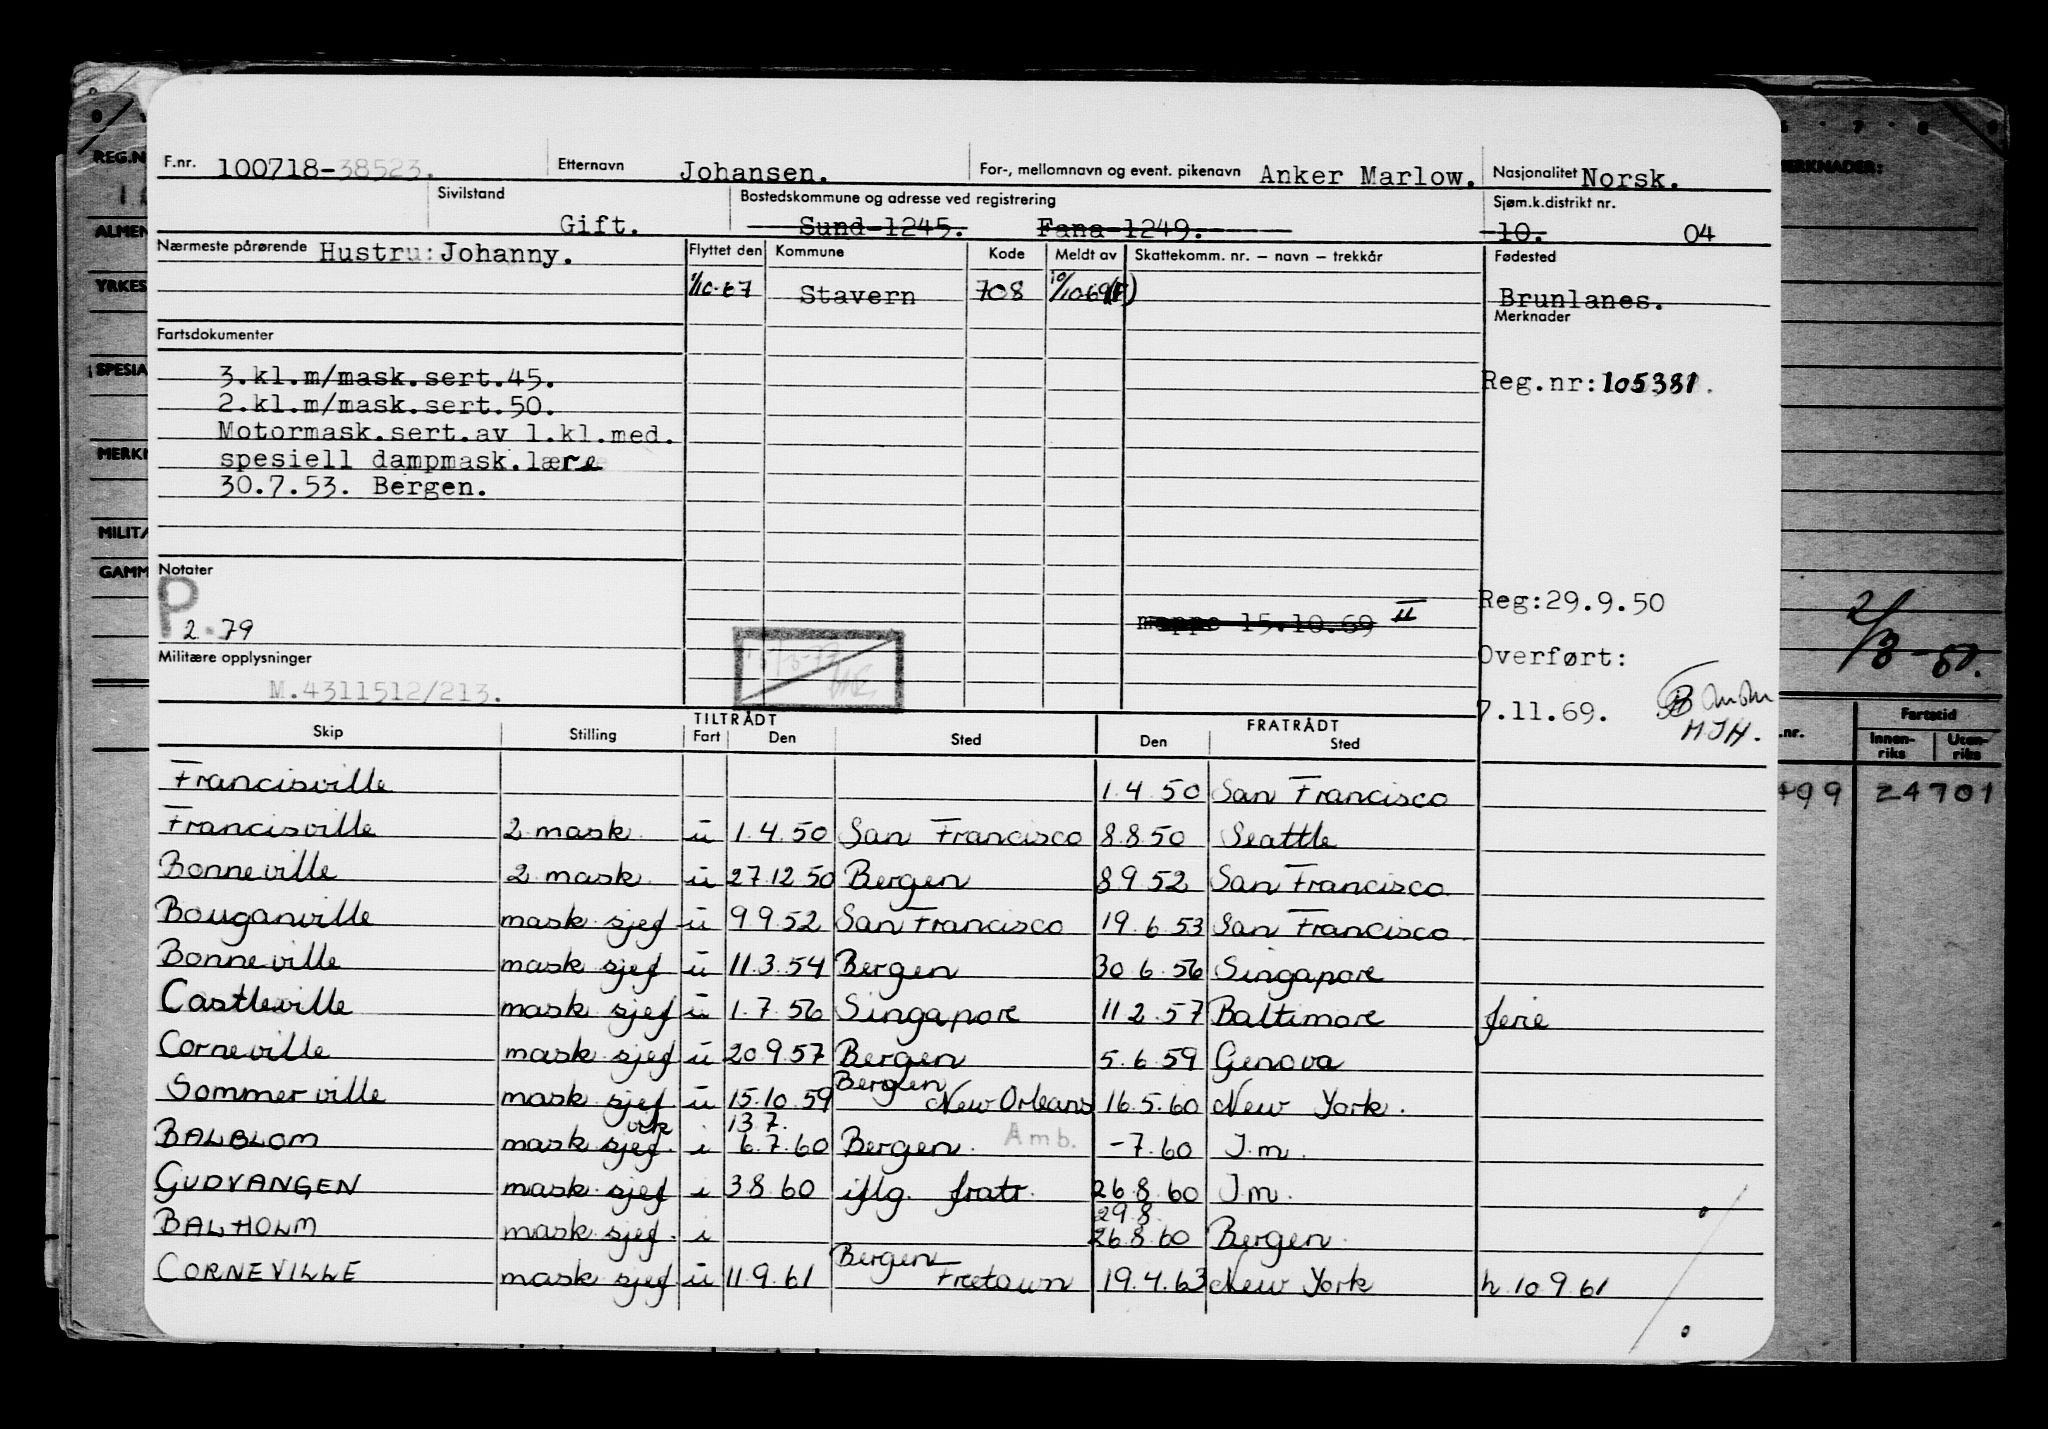 F.nr. 100718-38523. Etternavn Johansen. For-, mellomnavn og event. pikenavn Anker Marlow. Nasjonalitet Norsk.
Sivilstand Gift. Bostedskommune og adresse ved registrering Sund 1245. Fana 1249. Sjøm.k.distrikt nr. 10. 04
Nærmeste pårørende Hustru: Johanny. Flyttet den Kommune Kode Meldt av Skattekomm. nr. – navn – trekkår Fødested
1/10-67 Stavern 708 Brunlanes.
Merknader
Fartsdokumenter
3.kl.m/mask.sert.45. Reg.nr: 105381.
2.kl.m/mask.sert.50.
Motormask.sert.av 1.kl.med.
spesiell dampmask.lære
30.7.53. Bergen.
Notater
P 2.79
Reg:29.9.50
mappe 15.10.69 II
Militære opplysninger Overført:
M.4311512/213. 7.11.69.
MJH.
TILTRÅDT FRATRÅDT
Skip Stilling Fart Den Sted Den Sted
Francisville 1.4.50 San Francisco
Francisville 2 mask. u 1.4.50 San Francisco 8.8.50 Seattle
Bonneville 2 mask. u 27.12.50 Bergen 8 9 52 San Francisco
Bouganville mask sjef u 9 9.52 San Francisco 19.6.53 San Francisco
Bonneville mask sjef u 11.3.54 Bergen 30.6.56 Singapore
Castleville mask sjef u 1.7.56 Singapore 11 2.57 Baltimore ferie
Corneville mask sjef u 20.9.57 Bergen 5.6.59 Genova
Sommerville mask sjef u 15.10.59 Bergen New Orleans 16.5.60 New York.
vik 13.7.
BALBLOM mask sjef. i 6.7.60 Bergen. Amb. -7.60 I.m.
GUDVANGEN mask sjef i 3 8.60 iflg. fratr. 26.8.60 I.m.
29.8.
BALHOLM mask sjef. i 26.8.60 Bergen.
CORNEVILLE mask sjef u 11.9.61 Bergen Freetown 19.4.63 New York h.10.9.61
REG.N
ALMEN
YRKES
SPESIA
MERKN
MILITÆ
GAMM
MERKNADER:
6 7 8 9
2/3-50.
.nr. Fartstid
Innen-riks Uten-riks
499 24701